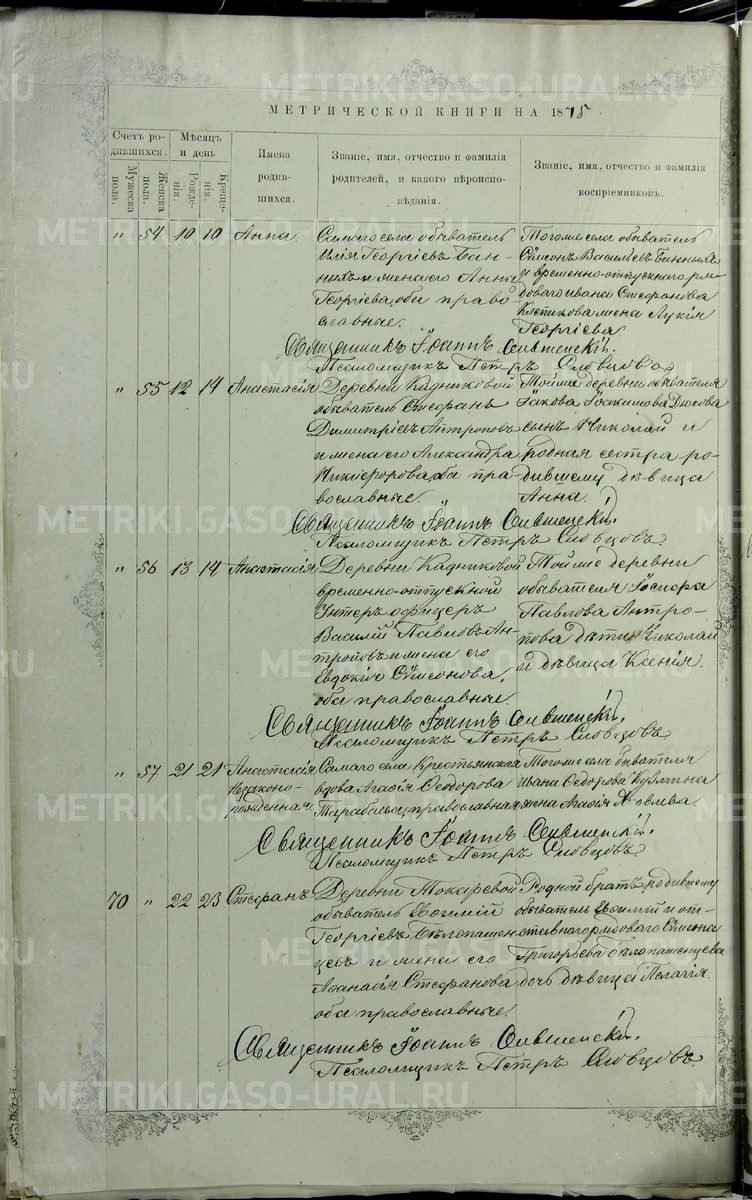 МЕТРИЧЕСКОЙ КНИГИ НА 1878
Счетъ родившихся.
Мѣсяцъ и день
Имена родившихся.
Званіе, имя, отчество и фамилія родителей, и какого вѣроисповѣданія.
Званіе, имя, отчество и фамилія воспріемниковъ.
Мужеска пола.
Женска пола.
Рожденія.
Крещенія.
" 54 10 10 Анна
Самаго села обыватель
Илія Георгіевъ Банныхъ и жена его Анна
Георгіева, оба православные.
Тогоже села обыватель
Сѵмеонъ Васильевъ Банныхъ
и временно-отпускнаго рядоваго Ивана Стефанова
жена Лукія
Георгіева.
Священникъ Іоаннъ
Псаломщикъ Петръ Словцовъ
" 55 12 14 Анастасія
Деревни Кадниковой
обыватель Стефанъ
Димитріевъ Антроповъ
и жена его Александра
Никифорова, оба православные
Тойже деревни обывателя
Іакова Іоакимова Дюсова
сынъ Николай и
родная сестра родившему дѣвица
Анна.
Священникъ Іоаннъ
Псаломщикъ Петръ Словцовъ
" 56 13 14 Анастасія
Деревни Кадниковой
временно-отпускной
Унтеръ офицеръ
Василій Павловъ Антроповъ и жена его
Евдокія Сѵмеонова,
оба православные.
Тойже деревни
обывателя
Павлова Антропова дѣти Николай
и дѣвица Ксенія.
Священникъ Іоаннъ
Псаломщикъ Петръ Словцовъ
" 57 21 21 Анастасія
незаконнорожденная
Самаго села Крестьянская
вдова Агафія Ѳеодорова
православная
Тогоже села обывателя
Ивана Ѳедорова Кузмина
жена Агафія
Священникъ Іоаннъ
Псаломщикъ Петръ Словцовъ
70 " 22 23 Стефанъ
Деревни Токаревой
обыватель Евѳимій
Георгіевъ Бѣлопашенцевъ и жена его
Аѳанасія Стефанова
оба православные.
Родной братъ родившему
обыватель Евѳимій и отставнаго рядоваго Сѵмеона
Григорьева Бѣлопашенцева
дочь дѣвица Пелагія.
Священникъ Іоаннъ
Псаломщикъ Петръ Словцовъ
METRIKI.GASO-URAL.RU